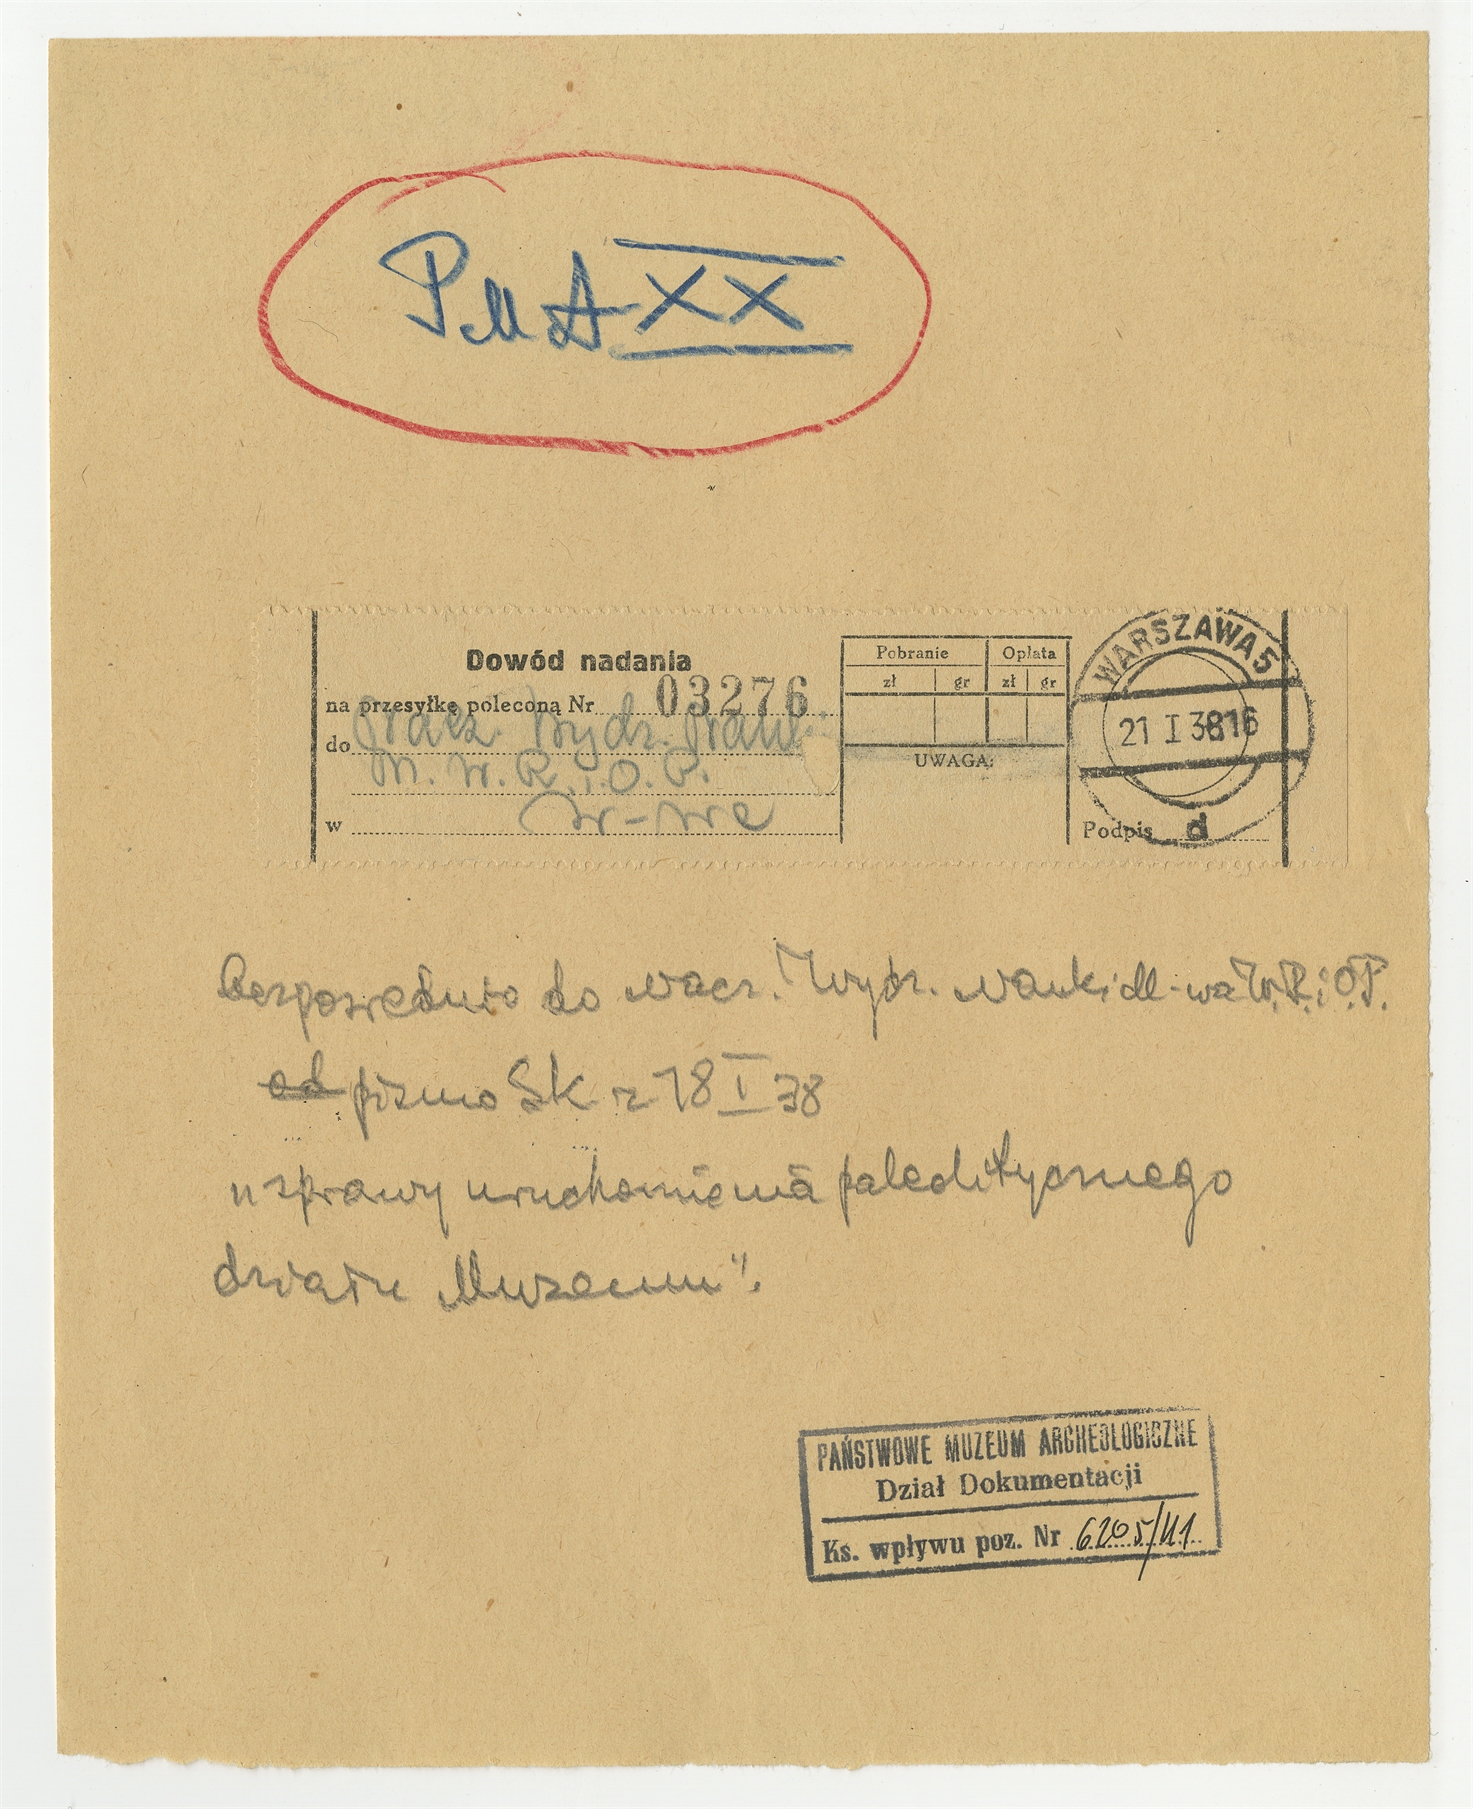 PMA XX
Dowód nadania
na przesyłkę poleconą Nr 03276
do Nacz. Wydz. Nauki
M. W. R. i O. P.
w W-wie
Pobranie Opłata
zł gr zł gr
UWAGA:
WARSZAWA 5
21 I 38 16
d
Podpis
Bezpośrednio do nacz. Wydz. Nauki M-wa W.R. i O.P.
od pismo SK z 18 I 38
w sprawy uruchomienia paleolitycznego
działu Muzeum".
PAŃSTWOWE MUZEUM ARCHEOLOGICZNE
Dział Dokumentacji
Ks. wpływu poz. Nr 6205/41